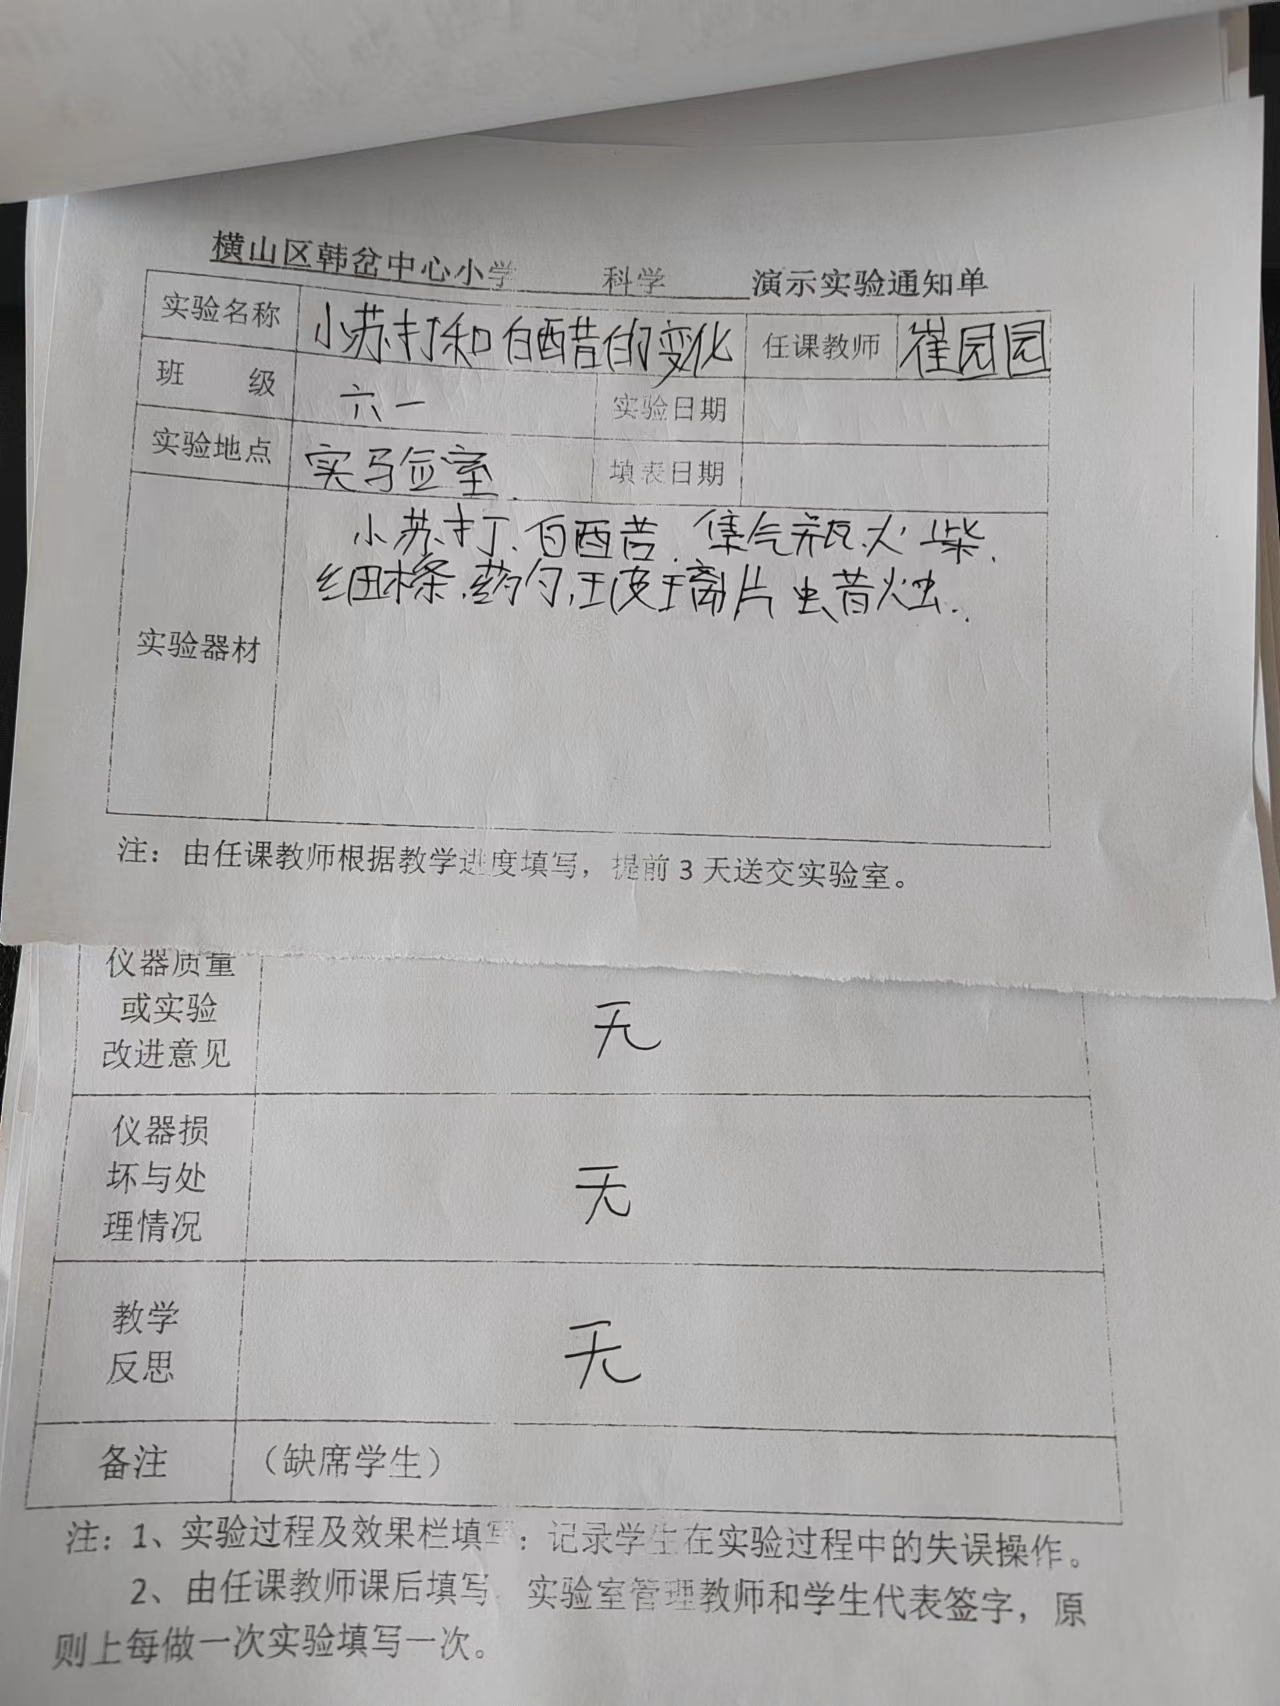 横山区韩岔中心小学 科学 演示实验通知单
实验名称 小苏打和白醋的变化 任课教师 崔园园
班 级 六一 实验日期
实验地点 实验室 填表日期
实验器材
小苏打、白醋、集气瓶、火柴、
细木条、药勺、玻璃片 蜡烛.
注：由任课教师根据教学进度填写，提前3天送交实验室。
仪器质量
或实验
改进意见
无
仪器损
坏与处
理情况
无
教学
反思
无
备注 （缺席学生）
注：1、实验过程及效果栏填写：记录学生在实验过程中的失误操作。
2、由任课教师课后填写，实验室管理教师和学生代表签字，原
则上每做一次实验填写一次。